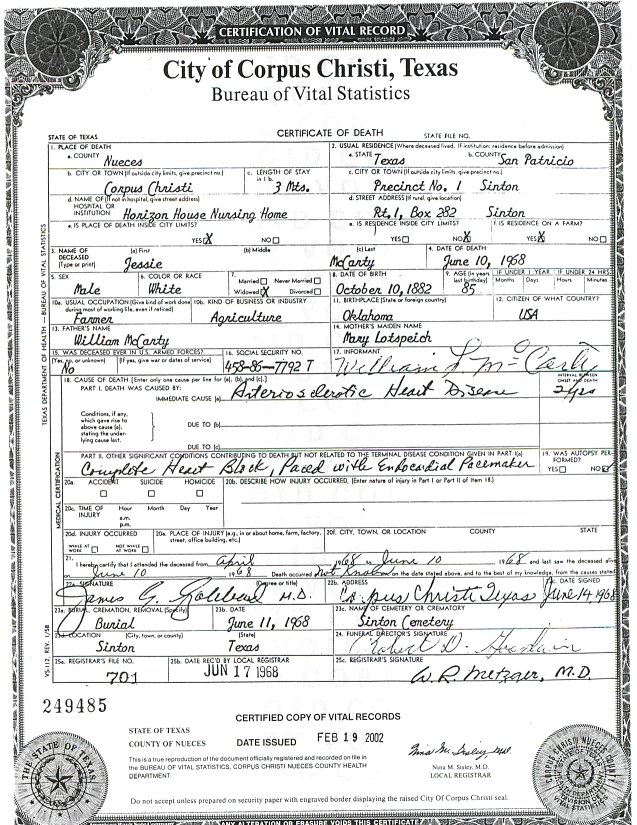 CERTIFICATION OF VITAL RECORD
City of Corpus Christi, Texas
Bureau of Vital Statistics
STATE OF TEXAS CERTIFICATE OF DEATH STATE FILE NO.
TEXAS DEPARTMENT OF HEALTH — BUREAU OF VITAL STATISTICS
1. PLACE OF DEATH
a. COUNTY Nueces
2. USUAL RESIDENCE (Where deceased lived. If institution: residence before admission)
a. STATE Texas b. COUNTY San Patricio
b. CITY OR TOWN (If outside city limits, give precinct no.) Corpus Christi
c. LENGTH OF STAY in 1 b. 3 Mts.
c. CITY OR TOWN (If outside city limits, give precinct no.) Precinct No. 1 Sinton
d. NAME OF (If not in hospital, give street address) HOSPITAL OR INSTITUTION Horizon House Nursing Home
d. STREET ADDRESS (If rural, give location) Rt. 1, Box 282 Sinton
e. IS PLACE OF DEATH INSIDE CITY LIMITS? YES X NO
e. IS RESIDENCE INSIDE CITY LIMITS? YES NO X
f. IS RESIDENCE ON A FARM? YES X NO
3. NAME OF DECEASED (Type or print) (a) First Jessie (b) Middle (c) Last McCarty
4. DATE OF DEATH June 10, 1968
5. SEX Male
6. COLOR OR RACE White
7. Married Never Married Widowed X Divorced
8. DATE OF BIRTH October 10, 1882
9. AGE (In years last birthday) 85
IF UNDER 1 YEAR Months Days
IF UNDER 24 HRS. Hours Minutes
10a. USUAL OCCUPATION (Give kind of work done during most of working life, even if retired) Farmer
10b. KIND OF BUSINESS OR INDUSTRY Agriculture
11. BIRTHPLACE (State or foreign country) Oklahoma
12. CITIZEN OF WHAT COUNTRY? USA
13. FATHER'S NAME William McCarty
14. MOTHER'S MAIDEN NAME Mary Lotspeich
15. WAS DECEASED EVER IN U.S. ARMED FORCES? (Yes, no, or unknown) (If yes, give war or dates of service) No
16. SOCIAL SECURITY NO. 458-86-7792 T
17. INFORMANT William L. McCarty
MEDICAL CERTIFICATION
18. CAUSE OF DEATH [Enter only one cause per line for (a), (b), and (c).]
PART I. DEATH WAS CAUSED BY:
IMMEDIATE CAUSE (a) Arteriosclerotic Heart Disease
INTERVAL BETWEEN ONSET AND DEATH
Conditions, if any, which gave rise to above cause (a), stating the underlying cause last.
DUE TO (b)
DUE TO (c)
PART II. OTHER SIGNIFICANT CONDITIONS CONTRIBUTING TO DEATH BUT NOT RELATED TO THE TERMINAL DISEASE CONDITION GIVEN IN PART I(a)
Complete Heart Block, Paced with Endocardial Pacemaker
19. WAS AUTOPSY PERFORMED? YES NO
20a. ACCIDENT SUICIDE HOMICIDE
20b. DESCRIBE HOW INJURY OCCURRED. (Enter nature of injury in Part I or Part II of Item 18.)
20c. TIME OF INJURY Hour a.m. p.m. Month Day Year
20d. INJURY OCCURRED WHILE AT WORK NOT WHILE AT WORK
20e. PLACE OF INJURY (e.g., in or about home, farm, factory, street, office building, etc.)
20f. CITY, TOWN, OR LOCATION COUNTY STATE
21. I hereby certify that I attended the deceased from April 1968 to June 10 1968 and last saw the deceased alive
on June 10 1968 Death occurred Not Known on the date stated above, and to the best of my knowledge, from the causes stated
22a. SIGNATURE (Degree or title) James G. M.D.
22b. ADDRESS Corpus Christi Texas
22c. DATE SIGNED June 14, 1968
23a. BURIAL, CREMATION, REMOVAL (Specify) Burial
23b. DATE June 11, 1968
23c. NAME OF CEMETERY OR CREMATORY Sinton Cemetery
23d. LOCATION (City, town, or county) (State) Sinton Texas
24. FUNERAL DIRECTOR'S SIGNATURE Robert D.
25a. REGISTRAR'S FILE NO. 701
25b. DATE REC'D BY LOCAL REGISTRAR JUN 17 1968
25c. REGISTRAR'S SIGNATURE W. R. Metzger, M.D.
VS-112, REV. 1/58
249485
CERTIFIED COPY OF VITAL RECORDS
STATE OF TEXAS
COUNTY OF NUECES DATE ISSUED FEB 19 2002
This is a true reproduction of the document officially registered and recorded on file in
the BUREAU OF VITAL STATISTICS, CORPUS CHRISTI NUECES COUNTY HEALTH
DEPARTMENT.
Nina M. Sisley, M.D.
LOCAL REGISTRAR
Do not accept unless prepared on security paper with engraved border displaying the raised City Of Corpus Christi seal.
THE STATE OF TEXAS
ANY ALTERATION OR ERASURE VOIDS THIS CERTIFICATE